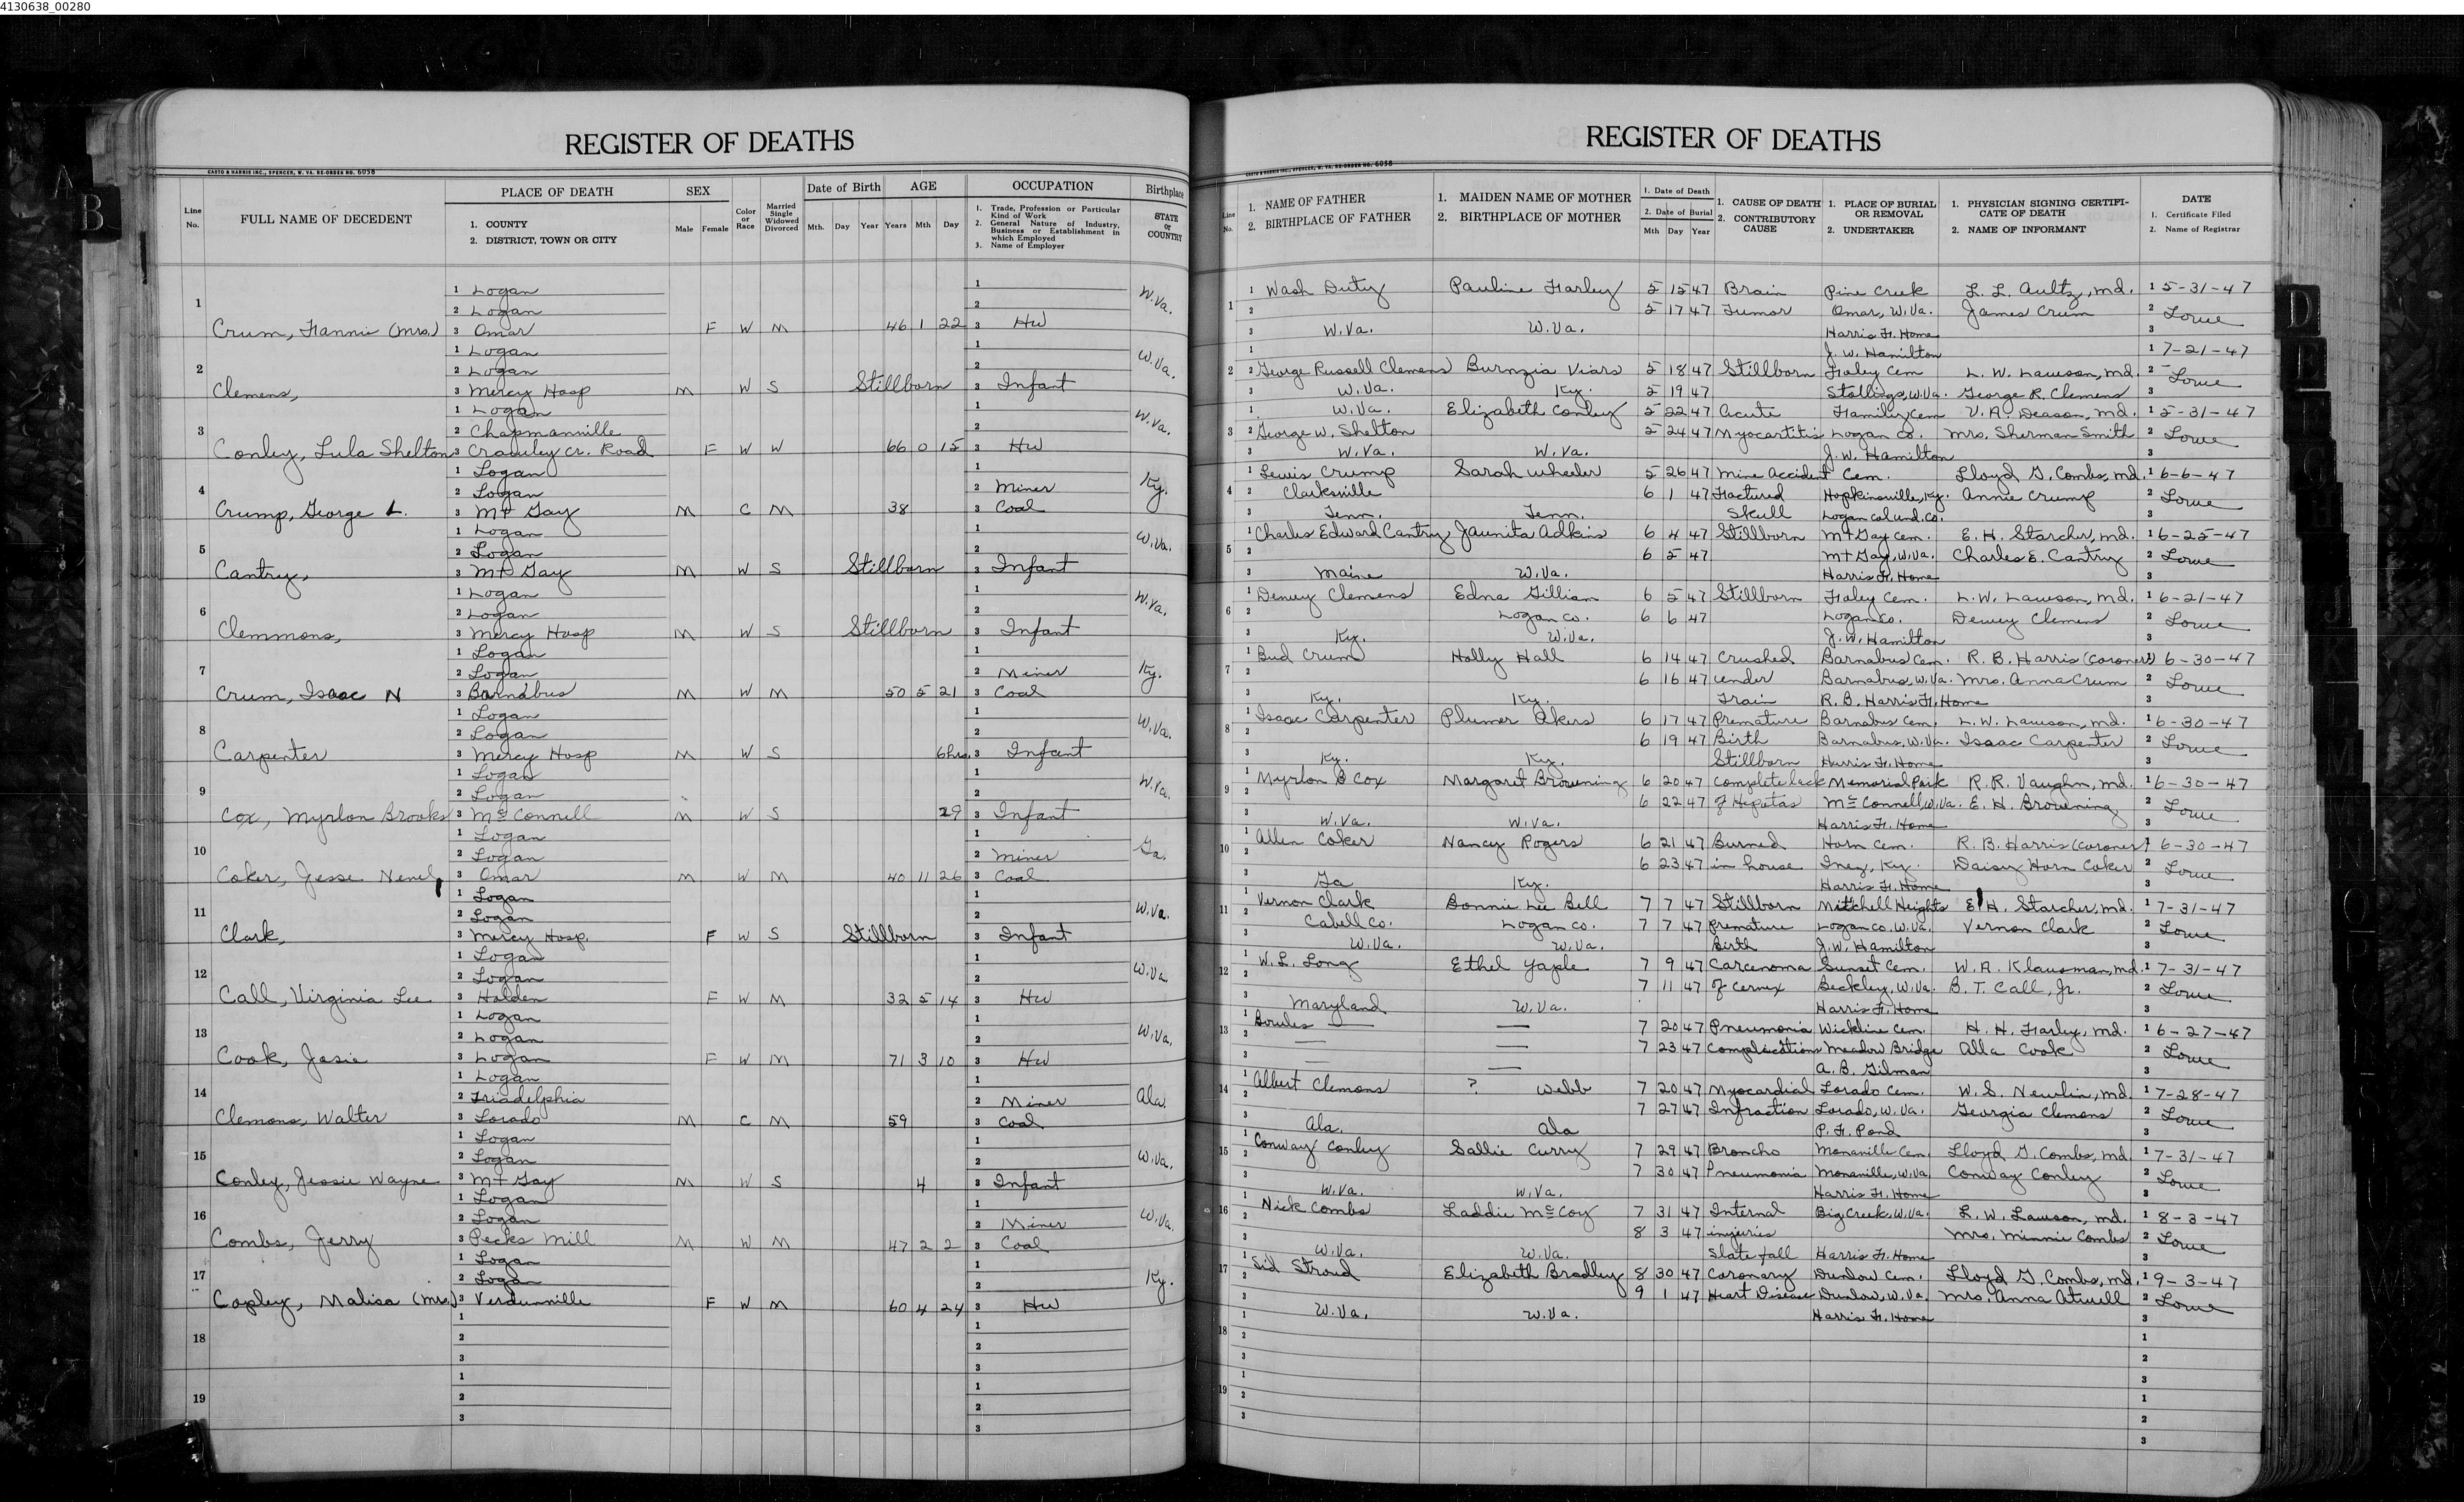 4130638_00280
REGISTER OF DEATHS
CASTO & HARRIS INC., SPENCER, W. VA. RE-ORDER NO. 6058
Line No.
FULL NAME OF DECEDENT
PLACE OF DEATH
1. COUNTY
2. DISTRICT, TOWN OR CITY
SEX
Male Female
Color or Race
Married Single Widowed Divorced
Date of Birth
Mth. Day Year
AGE
Years Mth Day
OCCUPATION
1. Trade, Profession or Particular Kind of Work
2. General Nature of Industry, Business or Establishment in which Employed
3. Name of Employer
Birthplace
STATE or COUNTRY
1 Crum, Fannie (Mrs.) 1 Logan 2 Logan 3 Omar F W M 46 1 22 3 Hw W.Va.
2 Clemens, 1 Logan 2 Logan 3 Mercy Hosp M W S Stillborn 3 Infant W.Va.
3 Conley, Lula Shelton 1 Logan 2 Chapmanville 3 Crawley Cr. Road F W W 66 0 15 3 Hw W.Va.
4 Crump, George L. 1 Logan 2 Logan 3 Mt Gay M C M 38 2 Miner 3 Coal Ky.
5 Cantry, 1 Logan 2 Logan 3 Mt Gay M W S Stillborn 3 Infant W.Va.
6 Clemmons, 1 Logan 2 Logan 3 Mercy Hosp M W S Stillborn 3 Infant W.Va.
7 Crum, Isaac N 1 Logan 2 Logan 3 Barnabus M W M 50 5 21 2 Miner 3 Coal Ky.
8 Carpenter 1 Logan 2 Logan 3 Mercy Hosp M W S 6 hrs. 3 Infant W.Va.
9 Cox, Myrlon Brooks 1 Logan 2 Logan 3 McConnell M W S 29 3 Infant W.Va.
10 Coker, Jesse 1 Logan 2 Logan 3 Omar M W M 40 11 26 2 Miner 3 Coal Ga.
11 Clark, 1 Logan 2 Logan 3 Mercy Hosp. F W S Stillborn 3 Infant W.Va.
12 Call, Virginia Lee 1 Logan 2 Logan 3 Holden F W M 32 5 14 3 Hw W.Va.
13 Cook, Josie 1 Logan 2 Logan 3 Logan F W M 71 3 10 3 Hw W.Va.
14 Clemons, Walter 1 Logan 2 Triadelphia 3 Lorado M C M 59 2 Miner 3 Coal Ala.
15 Conley, Jessie Wayne 1 Logan 2 Logan 3 Mt Gay M W S 4 3 Infant W.Va.
16 Combs, Jerry 1 Logan 2 Logan 3 Pecks Mill M W M 47 2 2 2 Miner 3 Coal W.Va.
17 Copley, Malisa (Mrs.) 1 Logan 2 Logan 3 Verdunville F W M 60 4 24 3 Hw Ky.
18
19
REGISTER OF DEATHS
CASTO & HARRIS INC., SPENCER, W. VA. RE-ORDER NO. 6058
Line No.
1. NAME OF FATHER
2. BIRTHPLACE OF FATHER
1. MAIDEN NAME OF MOTHER
2. BIRTHPLACE OF MOTHER
1. Date of Death
2. Date of Burial
Mth Day Year
1. CAUSE OF DEATH
2. CONTRIBUTORY CAUSE
1. PLACE OF BURIAL OR REMOVAL
2. UNDERTAKER
1. PHYSICIAN SIGNING CERTIFICATE OF DEATH
2. NAME OF INFORMANT
DATE
1. Certificate Filed
2. Name of Registrar
1 Wash Duty Pauline Farley 5 15 47 Brain Pine Creek L. L. Aultz, md. 5-31-47
5 17 47 Tumor Omar, W.Va. James Crum Lowe
W.Va. W.Va. Harris F. Home
J. W. Hamilton 7-21-47
2 George Russell Clemens Burnzia Viars 5 18 47 Stillborn Faley Cem L. W. Lawson, md. Lowe
W.Va. Ky. 5 19 47 Stollings, W.Va. George R. Clemens
W.Va. Elizabeth Conley 5 22 47 Acute Family Cem V. A. Deason, md. 5-31-47
3 George W. Shelton 5 24 47 Myocartitis Logan Co. Mrs. Sherman Smith Lowe
W.Va. W.Va. J.W. Hamilton
4 Lewis Crump Sarah Wheeler 5 26 47 Mine Accident Cem. Lloyd G. Combs, md. 6-6-47
Clarksville 6 1 47 Factured Hopkinsville, Ky. Annie Crump Lowe
Tenn. Tenn. Skull Logan Col Und. Co.
5 Charles Edward Cantry Jaunita Adkins 6 4 47 Stillborn Mt Gay Cem. E. H. Starcher, md. 6-25-47
6 5 47 Mt Gay, W.Va. Charles E. Cantry Lowe
Maine W.Va. Harris F. Home
6 Dewey Clemens Edna Gilliam 6 5 47 Stillborn Faley Cem. L.W. Lawson, md. 6-21-47
Logan Co. 6 6 47 Logan Co. Dewey Clemens Lowe
Ky. W.Va. J.W. Hamilton
7 Bud Crum Holly Hall 6 14 47 Crushed Barnabus Cem. R. B. Harris (Coroner) 6-30-47
6 16 47 under Barnabus, W.Va. Mrs. Anna Crum Lowe
Ky. Ky. Train R. B. Harris F. Home
8 Isaac Carpenter Plumer Akers 6 17 47 Premature Barnabus Cem. L.W. Lawson, md. 6-30-47
6 19 47 Birth Barnabus, W.Va. Isaac Carpenter Lowe
Ky. Ky. Stillborn Harris F. Home
9 Myrlon B Cox Margaret Browning 6 20 47 Complete lack Memorial Park R. R. Vaughn, md. 6-30-47
6 22 47 of Heputas McConnell, W.Va. E. H. Browning Lowe
W.Va. W.Va. Harris F. Home
10 Allen Coker Nancy Rogers 6 21 47 Burned Horn Cem. R. B. Harris (Coroner) 6-30-47
6 23 47 in house Inez, Ky. Daisy Horn Coker Lowe
Ga Ky. Harris F. Home
11 Vernon Clark Bonnie Lee Bell 7 7 47 Stillborn Mitchell Heights E. H. Starcher, md. 7-31-47
Cabell Co. Logan Co. 7 7 47 Premature Logan Co. W.Va. Vernon Clark Lowe
W.Va. W.Va. Birth J.W. Hamilton
12 W. L. Long Ethel Yaple 7 9 47 Carcenoma Sunset Cem. W. A. Klausman, md. 7-31-47
7 11 47 of Cervix Beckley, W.Va. B. T. Call, Jr. Lowe
Maryland W.Va. Harris F. Home
13 Bowles — — 7 20 47 Pneumonia Wickline Cem. H. H. Farley, md. 6-27-47
— — 7 23 47 Complications Meadow Bridge Alla Cook Lowe
— — A. B. Gilman
14 Albert Clemons ? Webb 7 20 47 Myocardial Lorado Cem. W. S. Newlin, md. 7-28-47
7 27 47 Infraction Lorado, W.Va. Georgia Clemons Lowe
Ala. Ala P. F. Pond
15 Conway Conley Sallie Curry 7 29 47 Broncho Monaville Cem. Lloyd G. Combs, md. 7-31-47
7 30 47 Pneumonia Monaville, W.Va. Conway Conley Lowe
W.Va. W.Va. Harris F. Home
16 Nick Combs Laddie McCoy 7 31 47 Internal Big Creek, W.Va. L. W. Lawson, md. 8-3-47
8 3 47 injuries Mrs. Minnie Combs Lowe
W.Va. W.Va. Slate fall Harris F. Home
17 Sid Stroud Elizabeth Bradley 8 30 47 Coronary Dunlow Cem. Lloyd G. Combs, md. 9-3-47
9 1 47 Heart Disease Dunlow, W.Va. Mrs. Anna Atwell Lowe
W.Va. W.Va. Harris F. Home
18
19